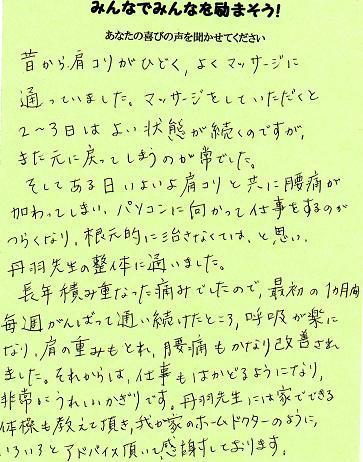 みんなでみんなを励まそう!
あなたの喜びの声を聞かせてください
昔から肩コリがひどく,よくマッサージに
通っていました。マッサージをしていただくと
2〜3日はよい状態が続くのですが,
また元に戻ってしまうのが常でした。
そしてある日いよいよ肩コリと共に腰痛が
加わってしまい,パソコンに向かって仕事をするのが
つらくなり,根元的に治さなくては、と思い,
丹羽先生の整体に通いました。
長年積み重なった痛みでしたので,最初の1カ月間
毎週がんばって通い続けたところ,呼吸が楽に
なり,肩の重みもとれ,腰痛もかなり改善され
ました。それからは,仕事もはかどるようになり,
非常にうれしいかぎりです。丹羽先生には家でできる
体操も教えて頂き,我が家のホームドクターのように,
いろいろとアドバイス頂いて感謝しております。